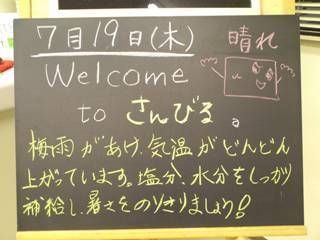 7月19日(木) 晴れ
Welcome
to さんびる。
梅雨があけ、気温がどんどん
上がっています。塩分、水分をしっかり
補給し、暑さをのりきりましょう!